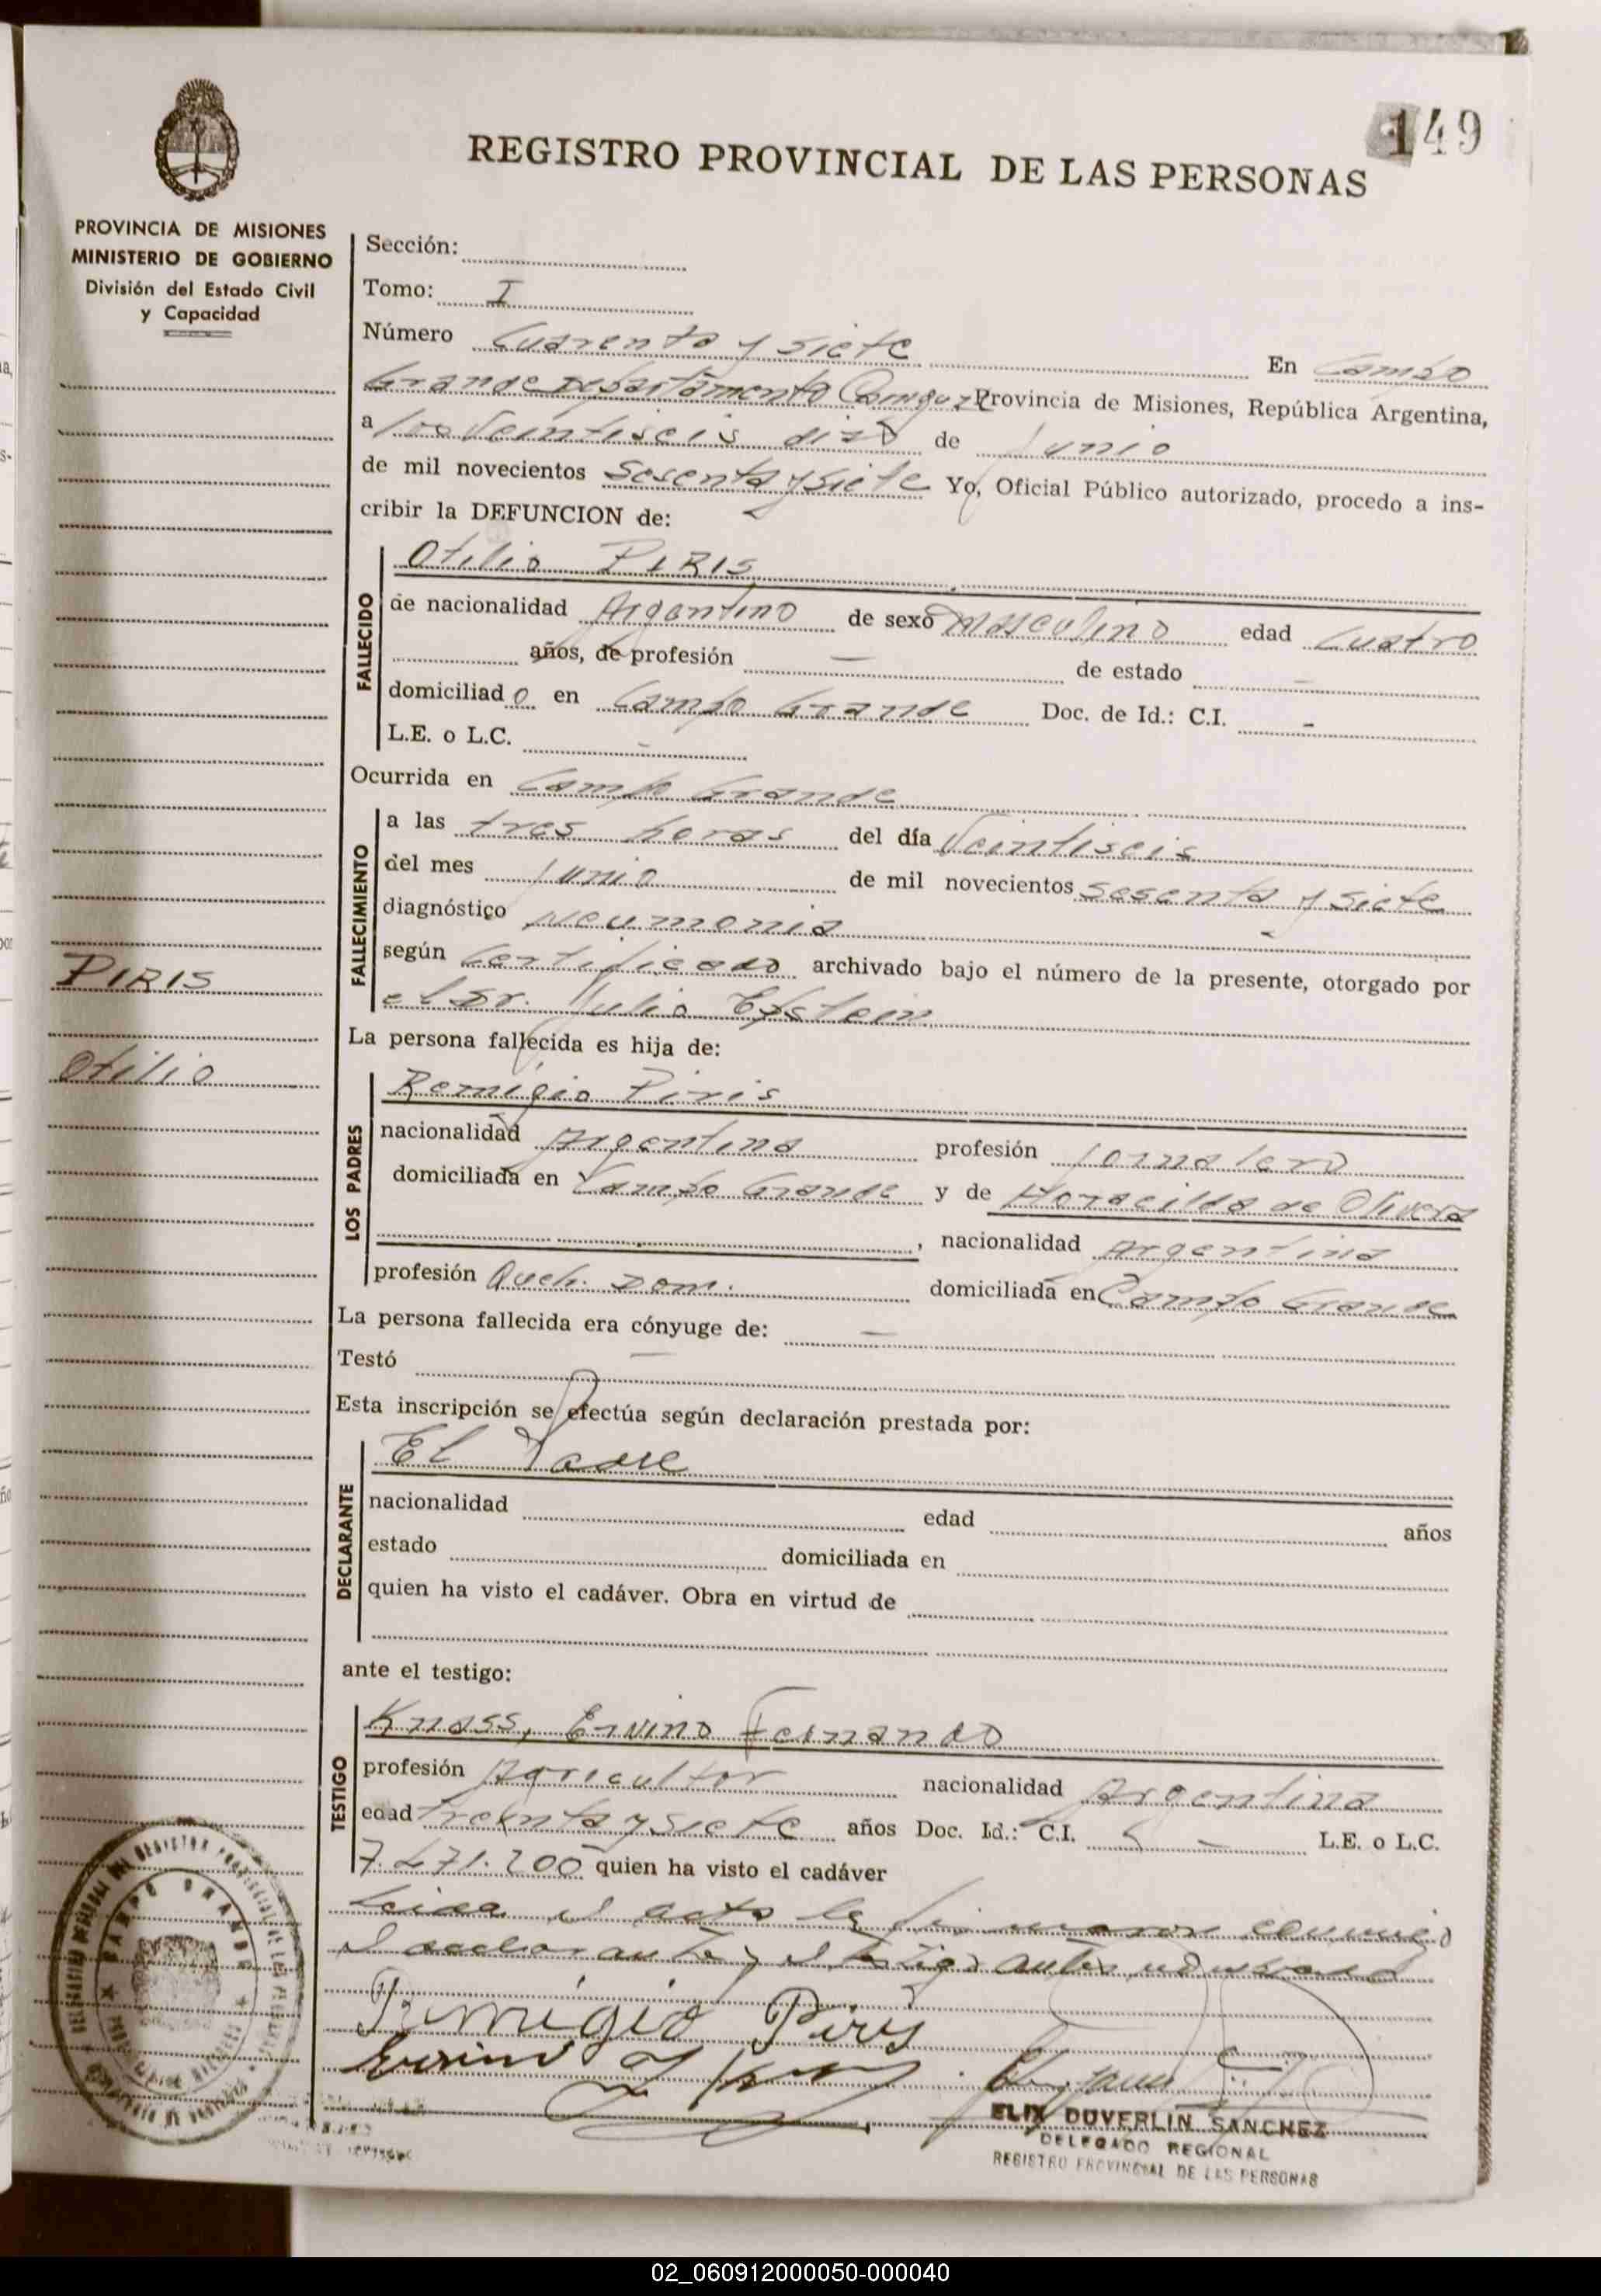 149
REGISTRO PROVINCIAL DE LAS PERSONAS
PROVINCIA DE MISIONES
MINISTERIO DE GOBIERNO
División del Estado Civil
y Capacidad
Sección:
Tomo: I
Número Cuarenta y siete En Campo
Grande Departamento Cainguaz Provincia de Misiones, República Argentina,
a los Veintiseis dias de Junio
de mil novecientos Sesenta y Siete Yo, Oficial Público autorizado, procedo a ins-
cribir la DEFUNCION de:
FALLECIDO
Otilio PIRIS
de nacionalidad Argentino de sexo Masculino edad Cuatro
años, de profesión — de estado —
domiciliado en Campo Grande Doc. de Id.: C.I. -
L.E. o L.C. -
Ocurrida en Campo Grande
FALLECIMIENTO
a las tres horas del día Veintiseis
del mes Junio de mil novecientos Sesenta y Siete
diagnóstico Neumonia
según Certificado archivado bajo el número de la presente, otorgado por
el Dr. Julio Epstein
PIRIS
Otilio
La persona fallecida es hija de:
LOS PADRES
Remigio Piris
nacionalidad Argentina profesión Jornalero
domiciliada en Campo Grande y de Horacilda de Olivera
, nacionalidad Argentina
profesión Queh. Dom. domiciliada en Campo Grande
La persona fallecida era cónyuge de: —
Testó —
Esta inscripción se efectúa según declaración prestada por:
DECLARANTE
El Padre
nacionalidad edad años
estado domiciliada en
quien ha visto el cadáver. Obra en virtud de
ante el testigo:
TESTIGO
Knass, Ervino Fernando
profesión Agricultor nacionalidad Argentina
edad Treinta y Siete años Doc. Id.: C.I. — L.E. o L.C.
7.471.200 quien ha visto el cadáver
Leida el acta la firmaron conmigo
el declarante y el testigo antes
Remigio Piris
Ervino
CAMPO GRANDE
ELIX DUVERLIN SANCHEZ
DELEGADO REGIONAL
REGISTRO PROVINCIAL DE LAS PERSONAS
02_060912000050-000040